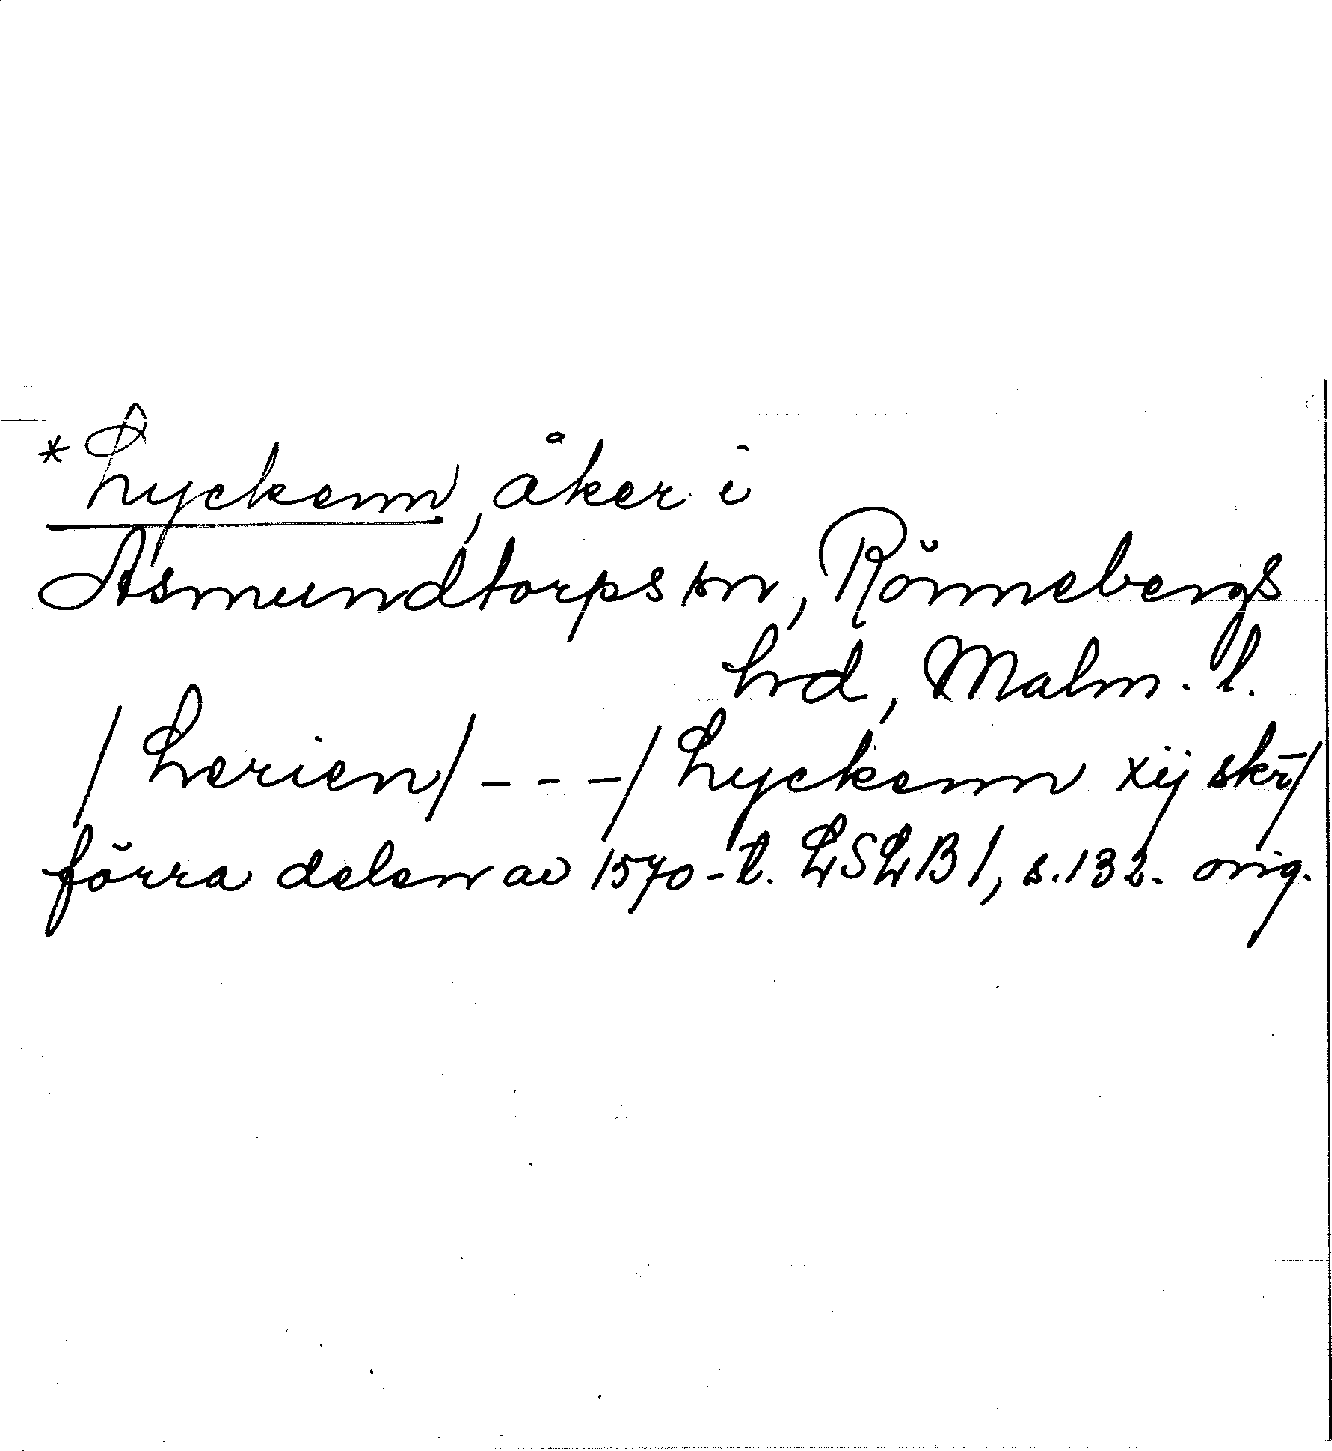 *Lyckenn, åker i
Asmundtorps sn, Rönnebergs
hrd, Malm. l.
/Lerien/ - - -/ Lyckenn xij skr̄/
förra delen av 1570-t. LSLB 1, s. 132. orig.